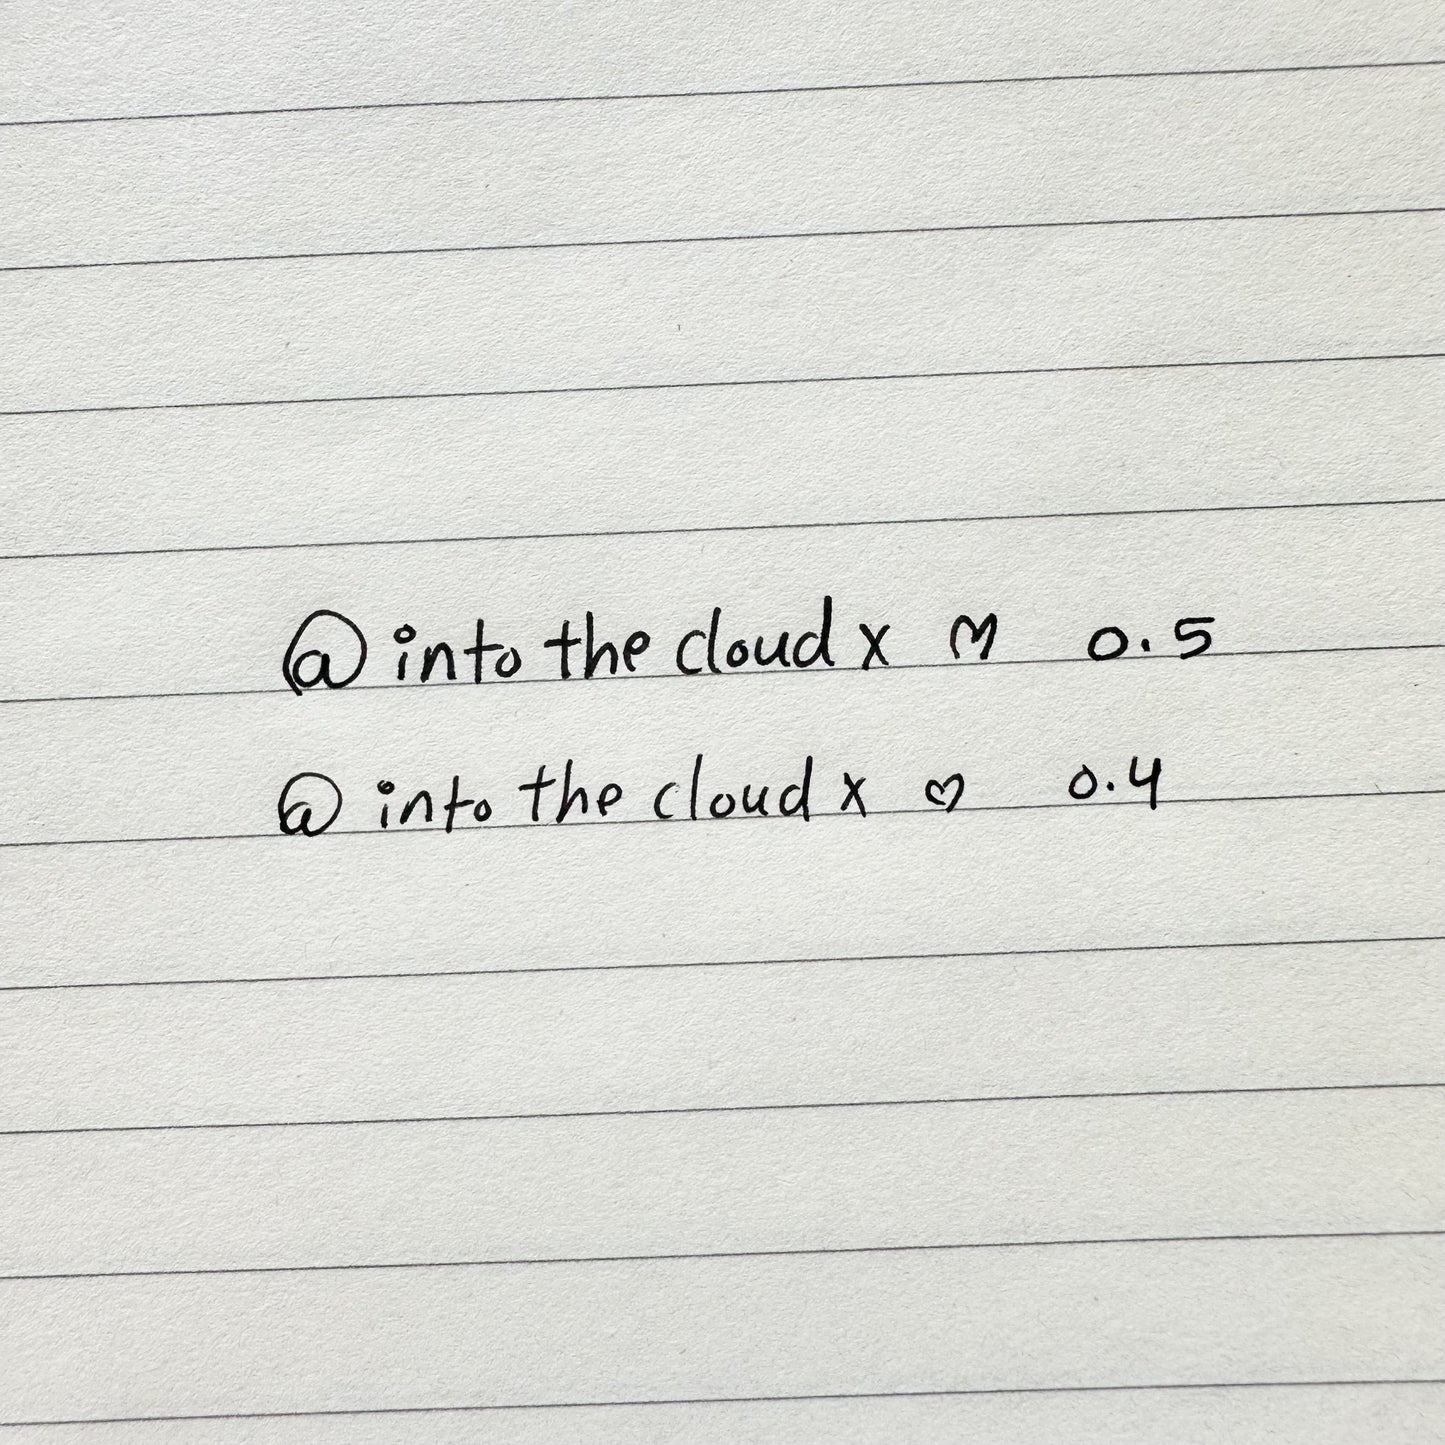 @into the cloudx ♡ 0.5
@into the cloudx ♡ 0.4